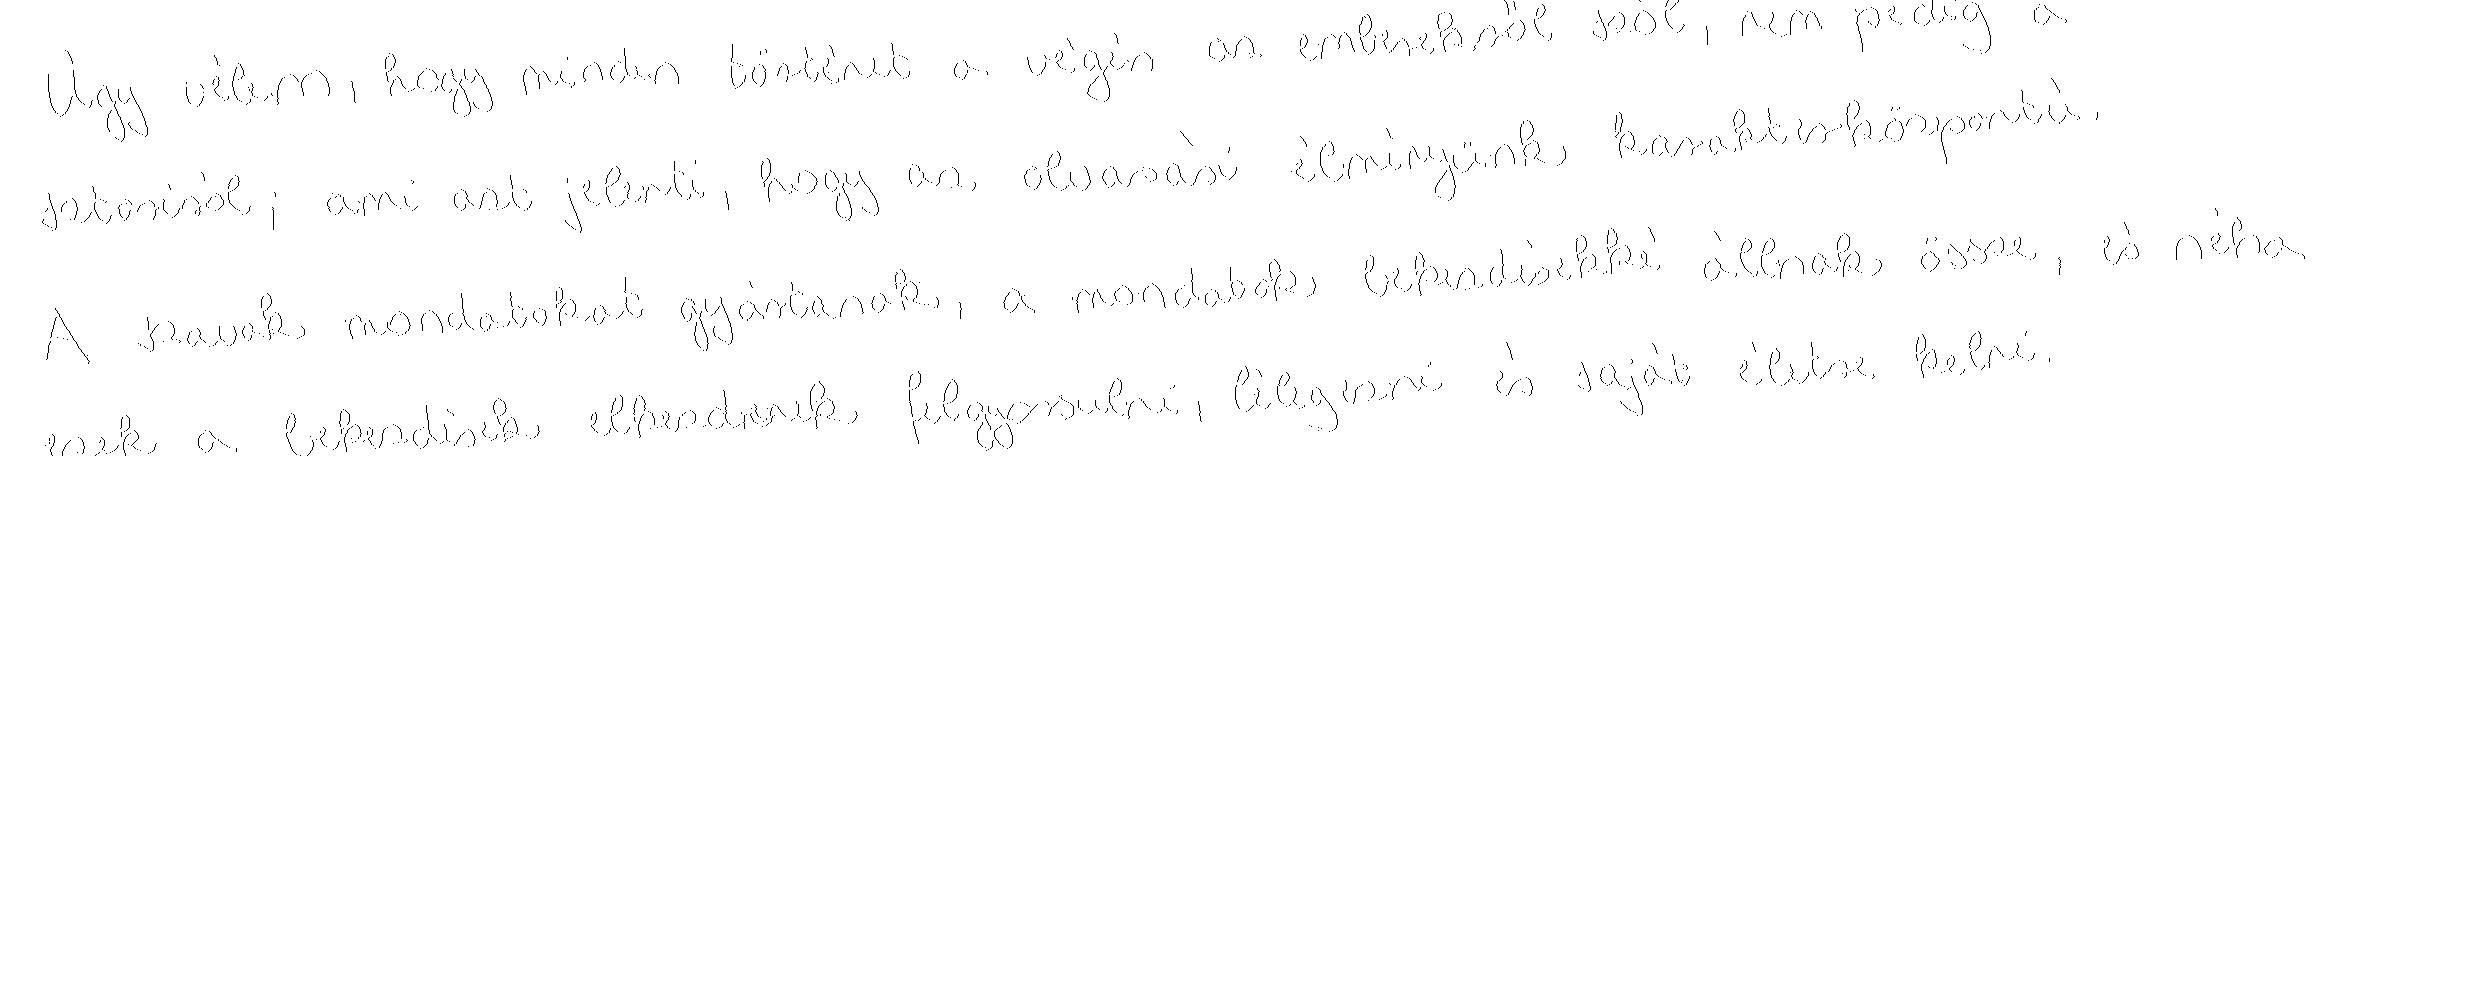 Úgy vélem, hogy minden történet a végén az emberekről szól, nem pedig a
sztoriról; ami azt jelenti, hogy az olvasási élményünk karakterközpontú.
A szavak mondatokat gyártanak, a mondatok bekezdésekké állnak össze, és néha
ezek a bekezdések elkezdenek felgyorsulni, lélegezni és saját életre kelni.